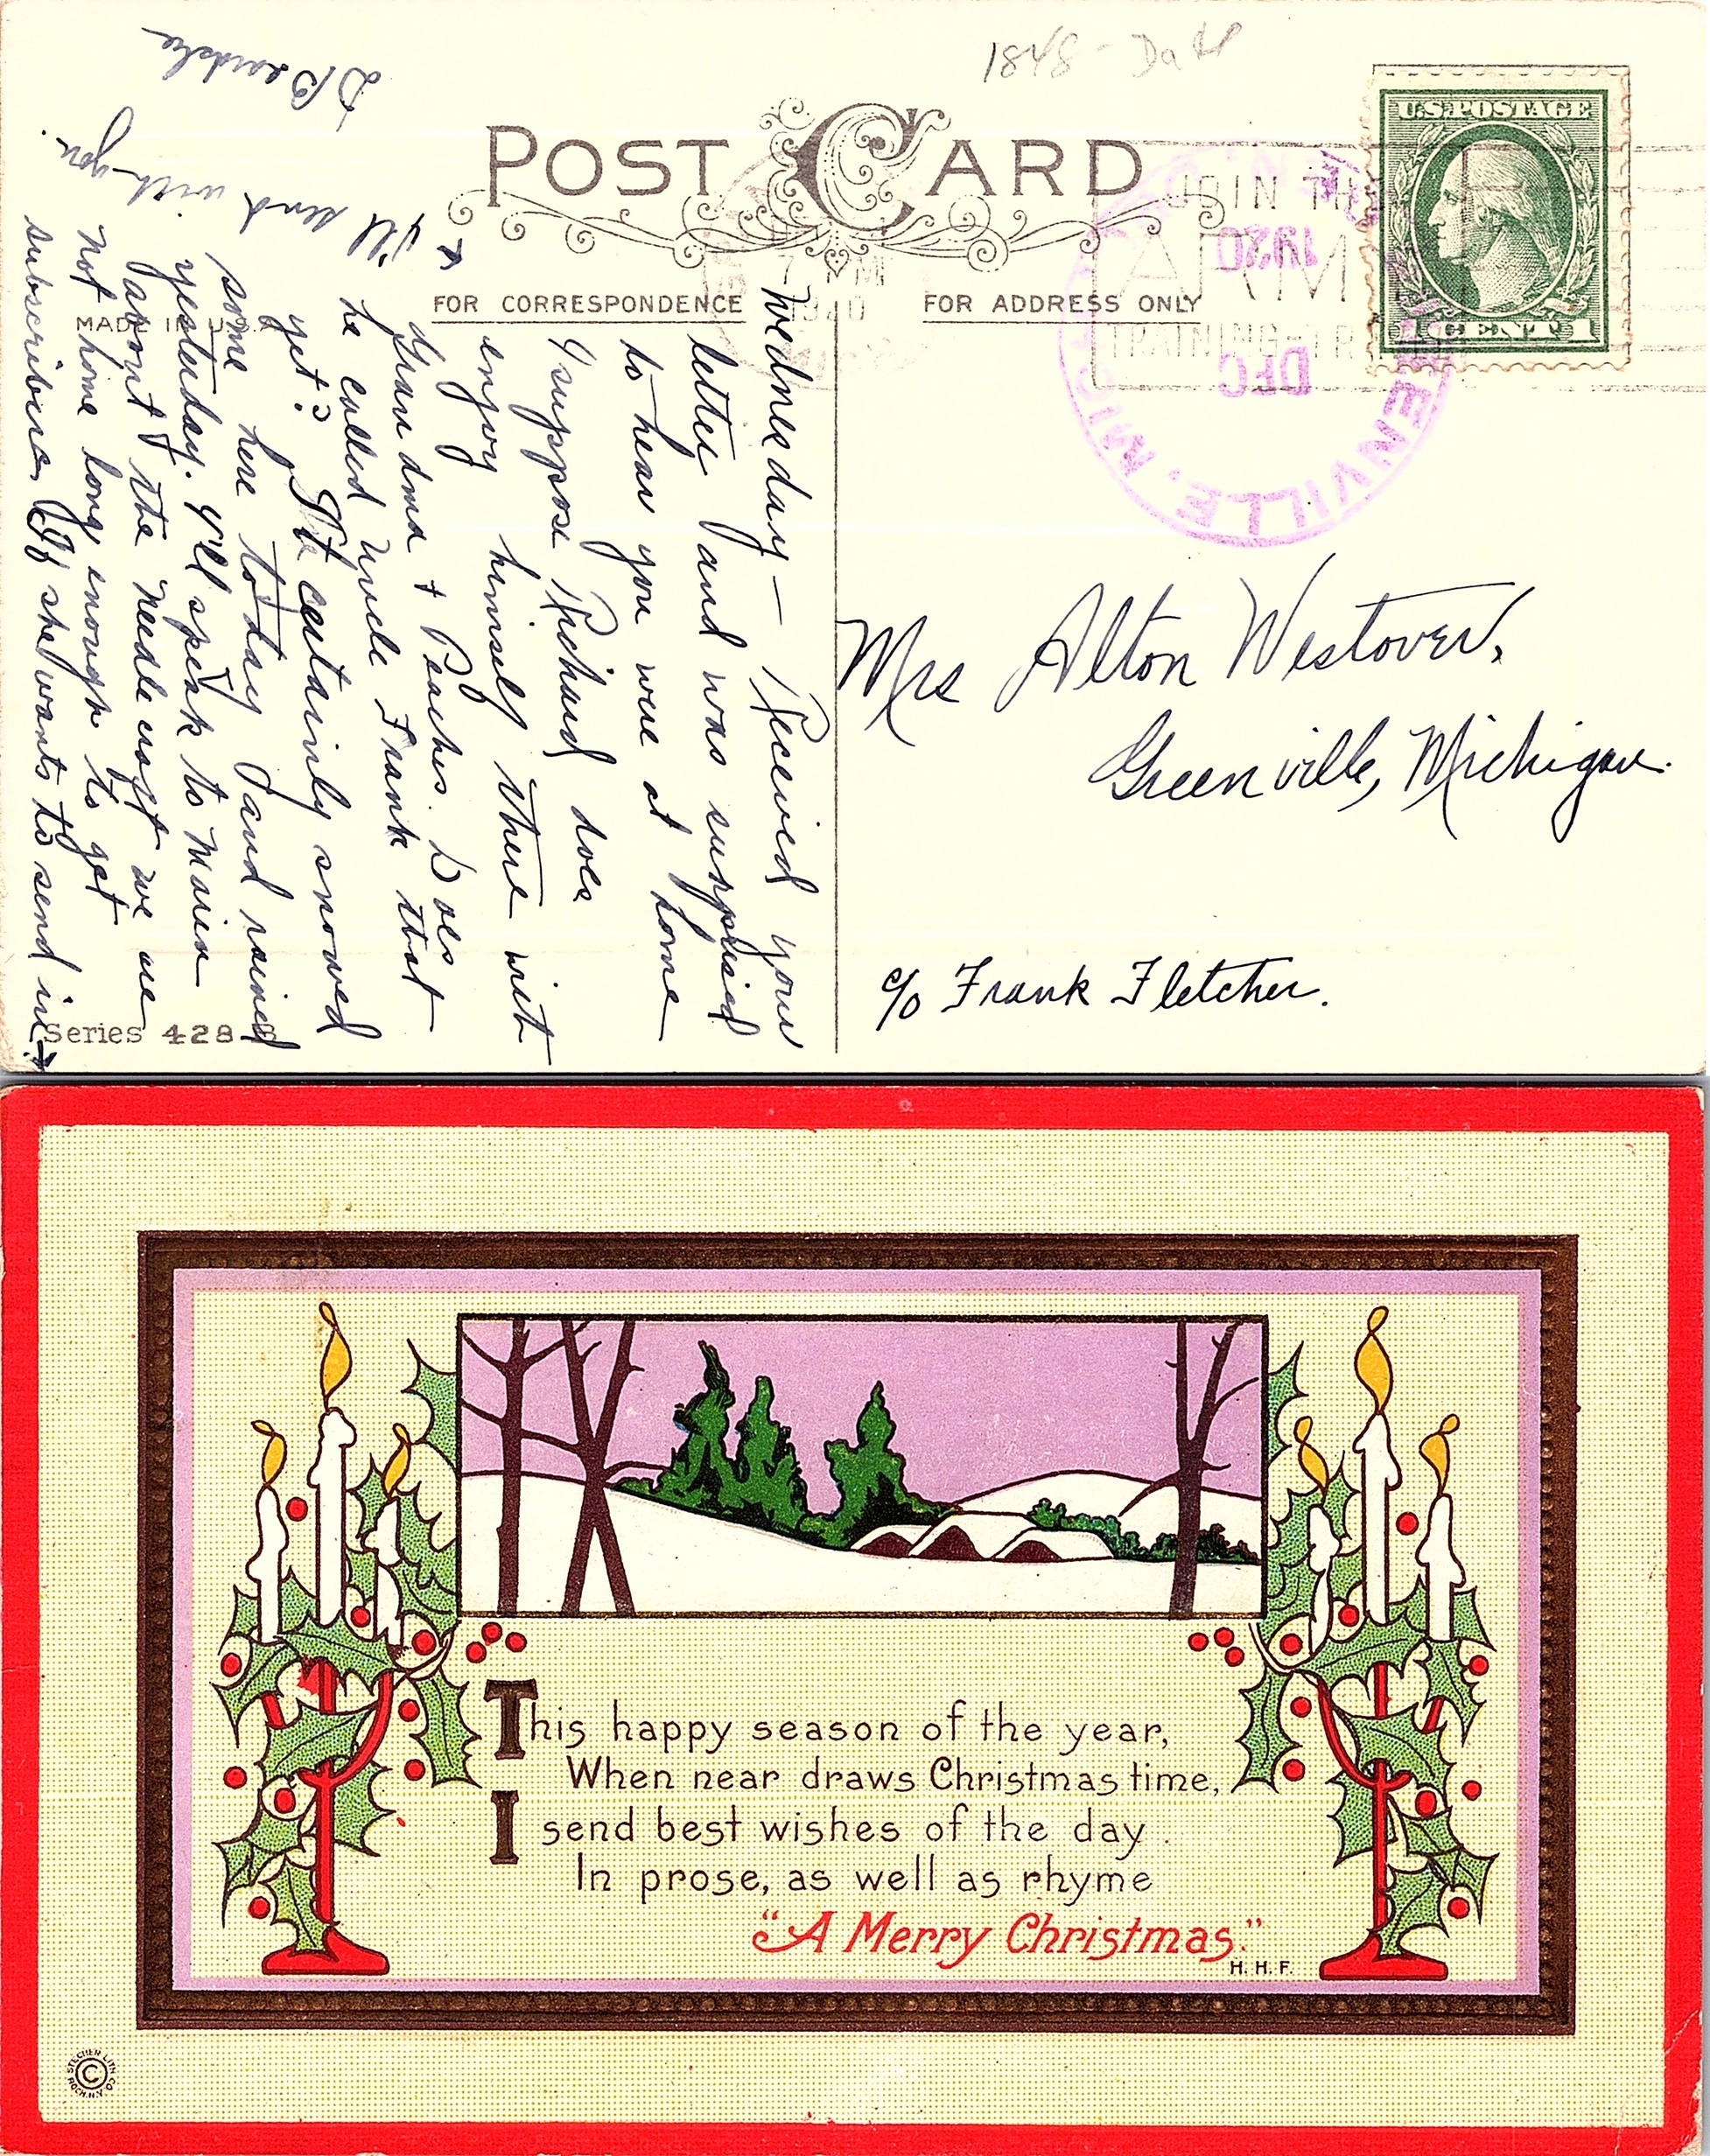 1848 - Date
POST CARD
U.S. POSTAGE
1 CENT 1
JOIN THE
ARMY
TRAINING-TR
7- PM
1920
ENVILLE, MICH
DEC
1920
FOR CORRESPONDENCE
FOR ADDRESS ONLY
MADE IN U.S.A
Wednesday - Received your
letter and was surprised
to hear you were at home
I suppose Richard does
enjoy himself there with
Grandma + Peaches. Does
he called Uncle Frank that
yet? It certainly snowed
some here today and rained
yesterday. I'll speak to
about the Needlecraft we are
not home long enough to get
subscribers If she wants to send in
I'll send with you.
Mrs Alton Westover,
Greenville, Michigan.
c/o Frank Fletcher.
Series 428
This happy season of the year,
When near draws Christmas time,
I send best wishes of the day
In prose, as well as rhyme
"A Merry Christmas."
H. H. F.
STECHER LITH. CO.
ROCH. N.Y.
©